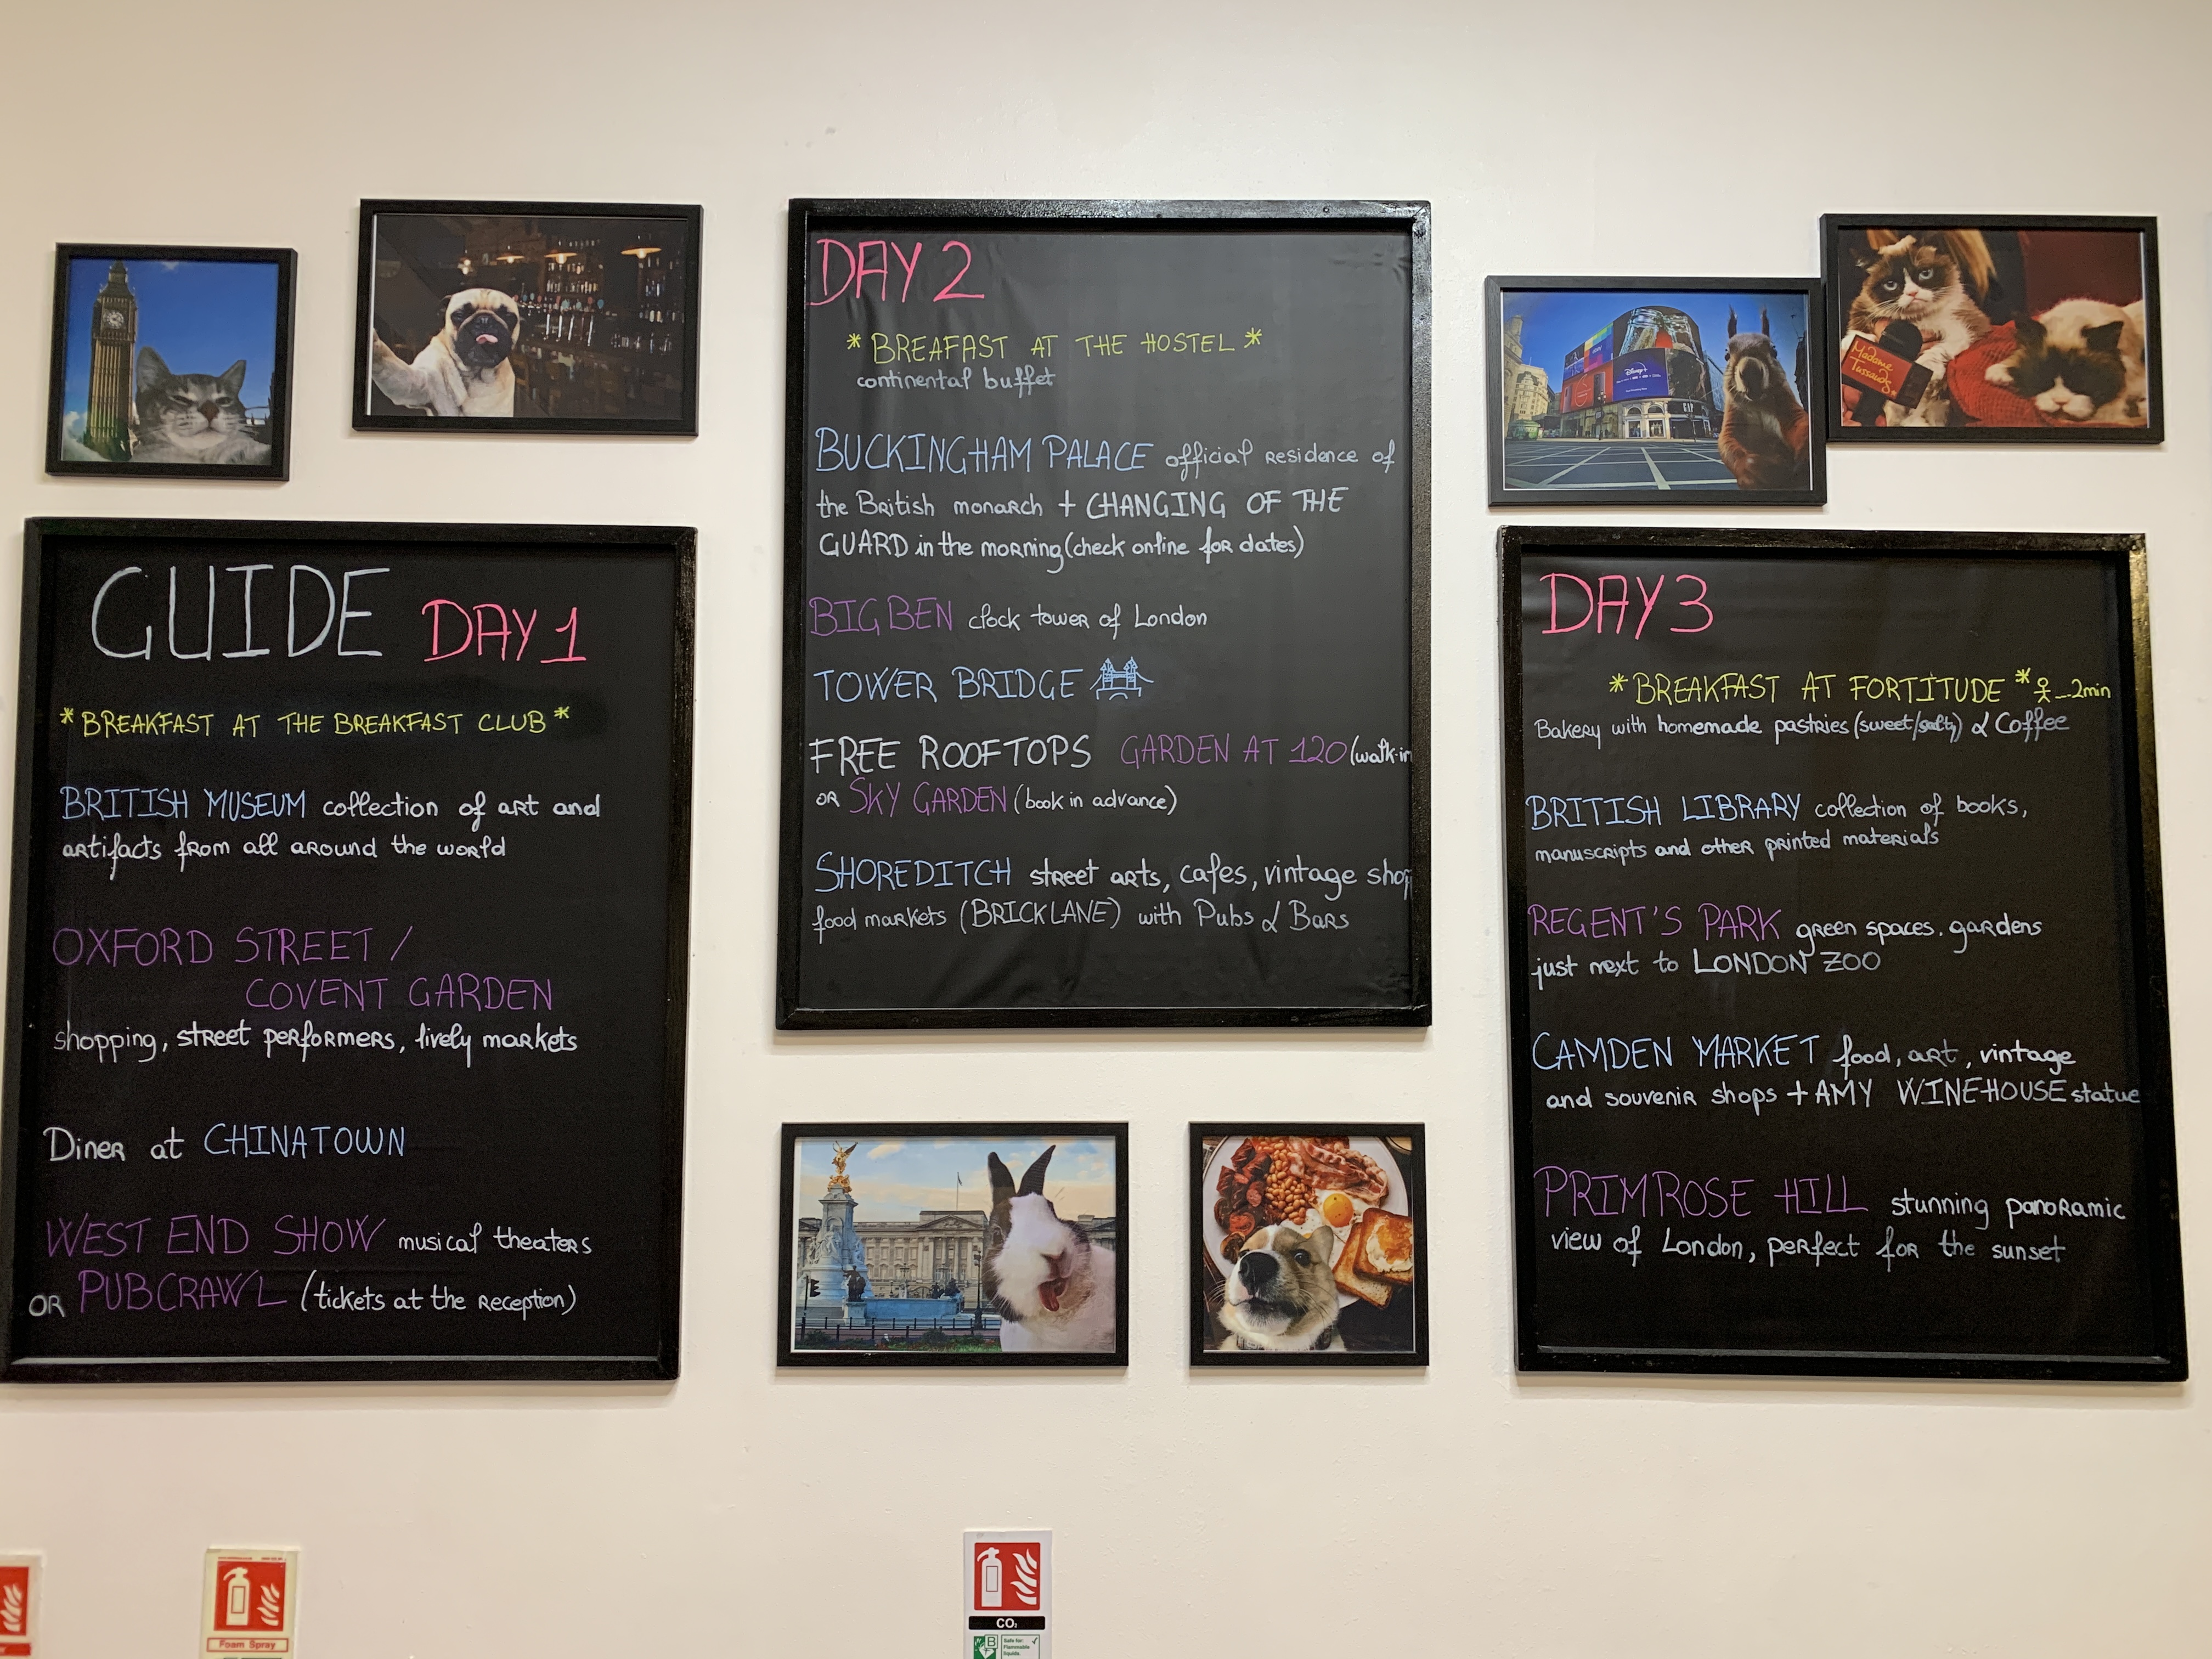 GUIDE DAY 1
*BREAKFAST AT THE BREAKFAST CLUB*
BRITISH MUSEUM collection of art and
artifacts from all around the world
OXFORD STREET /
COVENT GARDEN
shopping, street performers, lively markets
Diner at CHINATOWN
WEST END SHOW musical theaters
OR PUBCRAWL (tickets at the reception)
DAY 2
*BREAFAST AT THE HOSTEL*
continental buffet
BUCKINGHAM PALACE official residence of
the British monarch + CHANGING OF THE
GUARD in the morning (check online for dates)
BIG BEN clock tower of London
TOWER BRIDGE
FREE ROOFTOPS GARDEN AT 120 (walk-in
OR SKY GARDEN (book in advance)
SHOREDITCH street arts, cafes, vintage shop
food markets (BRICKLANE) with Pubs & Bars
DAY 3
*BREAKFAST AT FORTITUDE* 2min
Bakery with homemade pastries (sweet/salty) & Coffee
BRITISH LIBRARY collection of books,
manuscripts and other printed materials
REGENT'S PARK green spaces. gardens
just next to LONDON ZOO
CAMDEN MARKET food, art, vintage
and souvenir shops + AMY WINEHOUSE statue
PRIMROSE HILL stunning panoramic
view of London, perfect for the sunset
Disney+
GAP
Madame
Tussauds
Foam Spray
CO₂
B
Safe for:
Flammable
liquids.